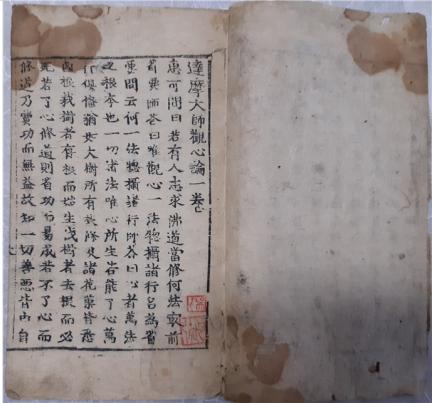 達摩大師觀心論一卷
惠可問曰若有人志求佛道當修何法㝡前
省要師答曰唯觀心一法惣攝諸行名為省
要問云何一法惣攝諸行師答曰心者萬法
之根本也一切諸法唯心所生若能了心萬
行俱備猶大樹所有枝條及諸花葉皆悉
因根栽樹者存根而始生伐樹者去根而必
死若了心修道則省功而易成若不了心而
修道乃費功而無益故知一切善惡皆由自